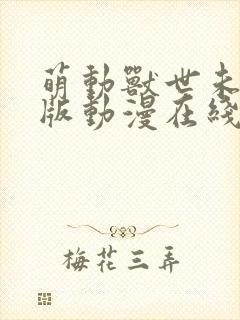 萌動獸世未
版動漫在綫
梅花三弄